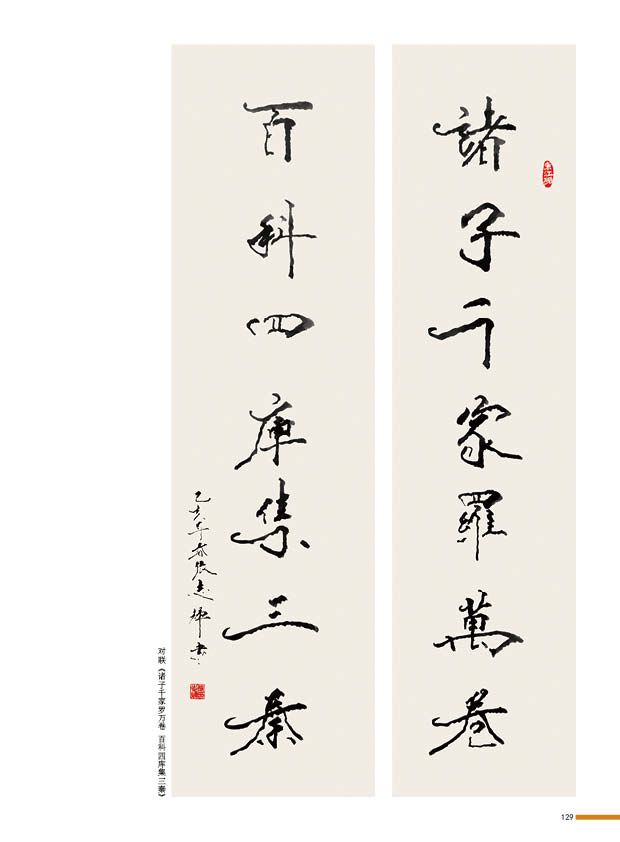 諸子千家羅萬卷
百科四库集三秦
己亥年春張志
书
对联《诸子千家罗万卷 百科四库集三秦》
129